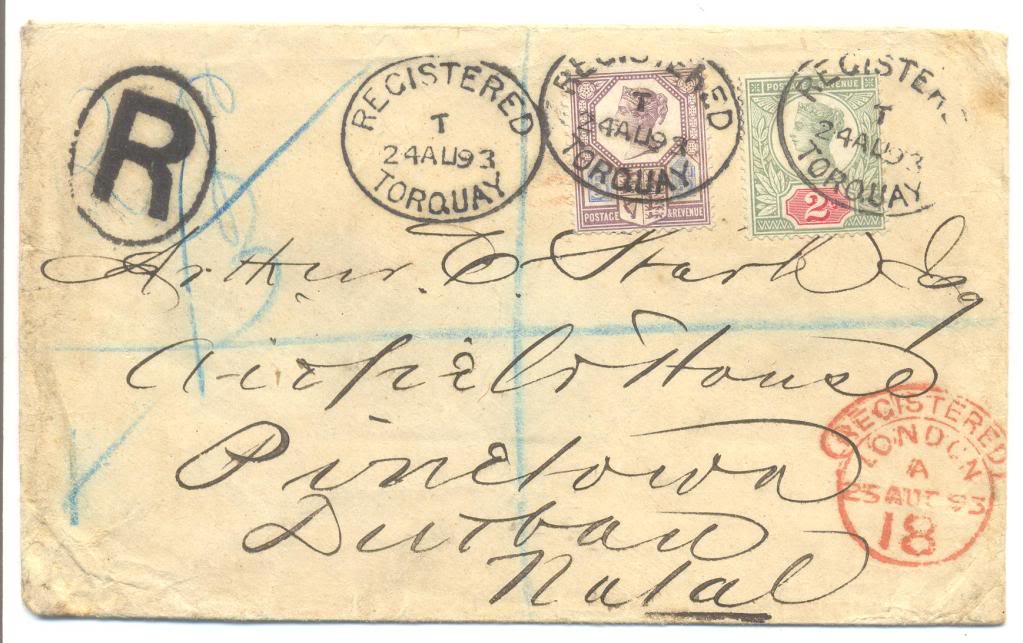 R
REGISTERED
T
24 AU 93
TORQUAY
REGISTERED
T
24 AU 93
TORQUAY
POSTAGE & REVENUE
REGISTERED
T
24 AU 93
TORQUAY
POSTAGE & REVENUE
2
Arthur C. Stark Esq
House
Pinetown
Durban
Natal
REGISTERED
LONDON
A
25 AUT 93
18